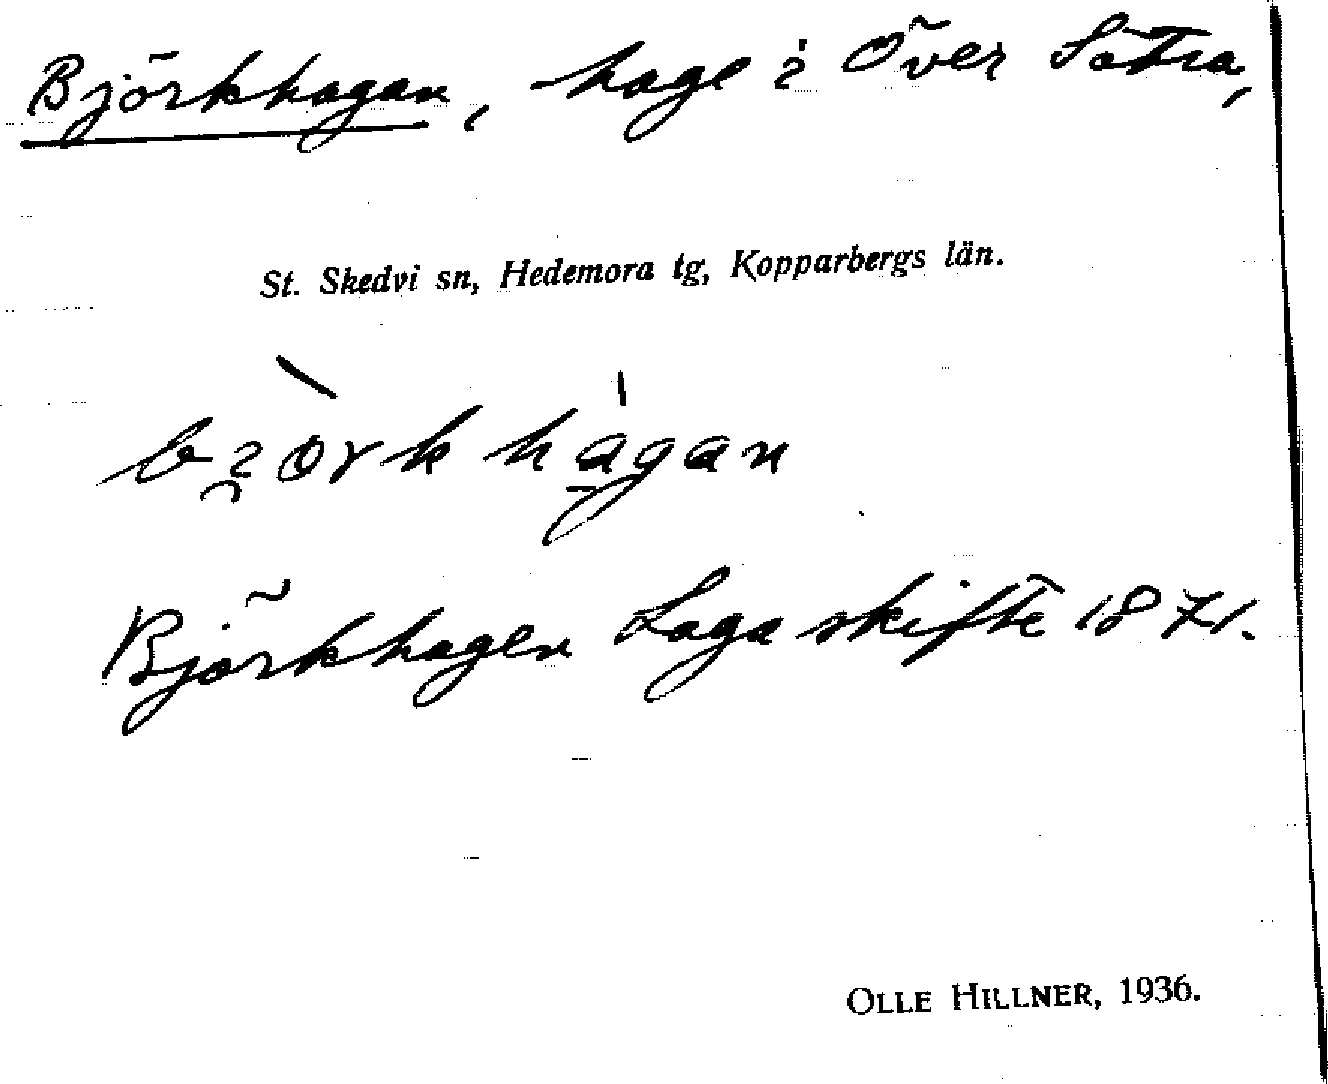 Björkhagan, hage i Över Sätra,
St. Skedvi sn, Hedemora tg, Kopparbergs län.
bi̯òrkhágan
Björkhagen Laga skifte 1871.
OLLE HILLNER, 1936.